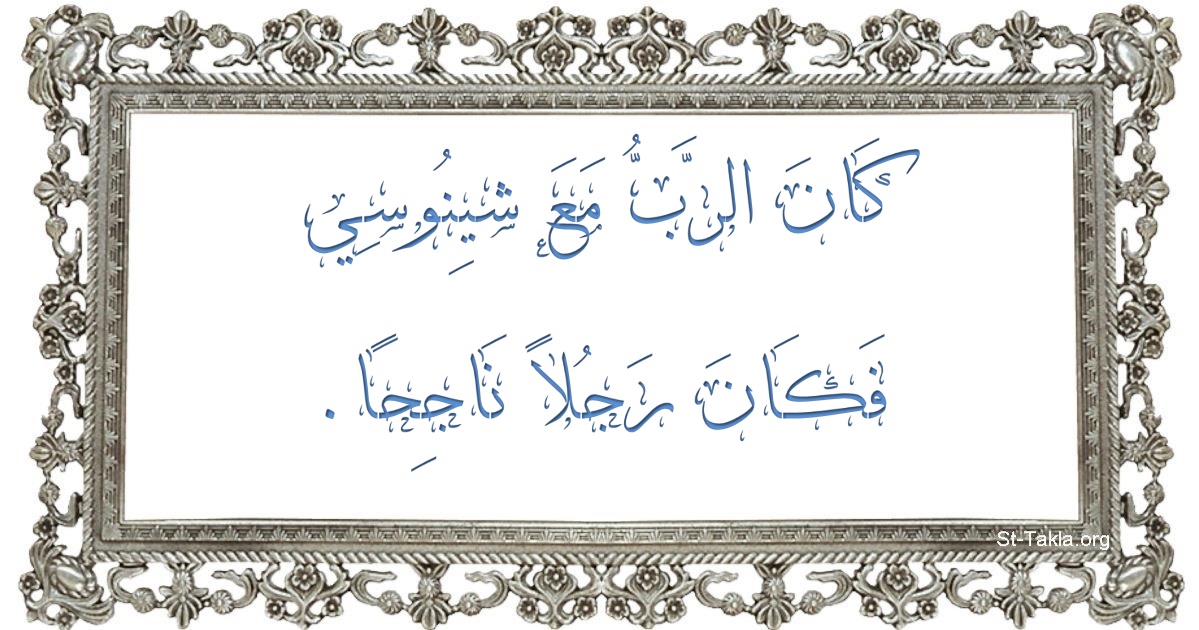 كَانَ الرَّبُّ مَعَ شِينُوسِي
فَكَانَ رَجُلاً نَاجِحًا .
St-Takla.org